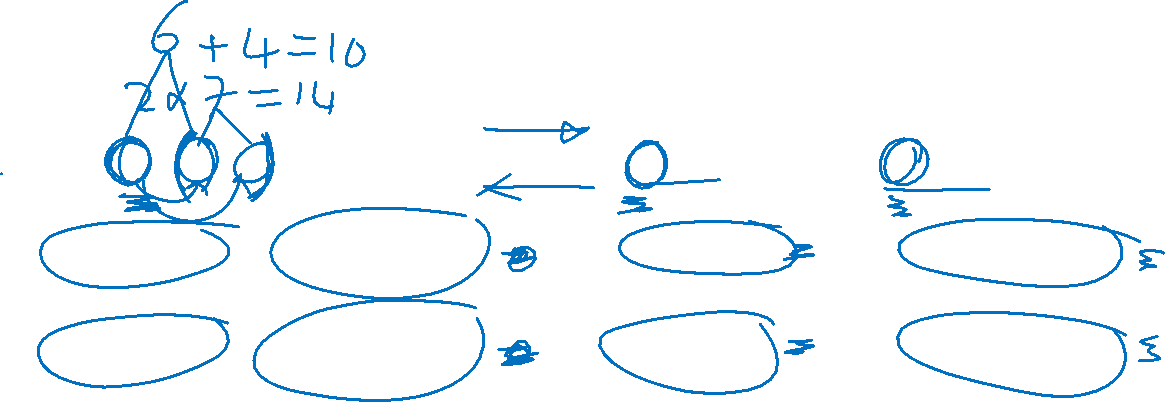 6 + 4 = 10
2 × 7 = 14